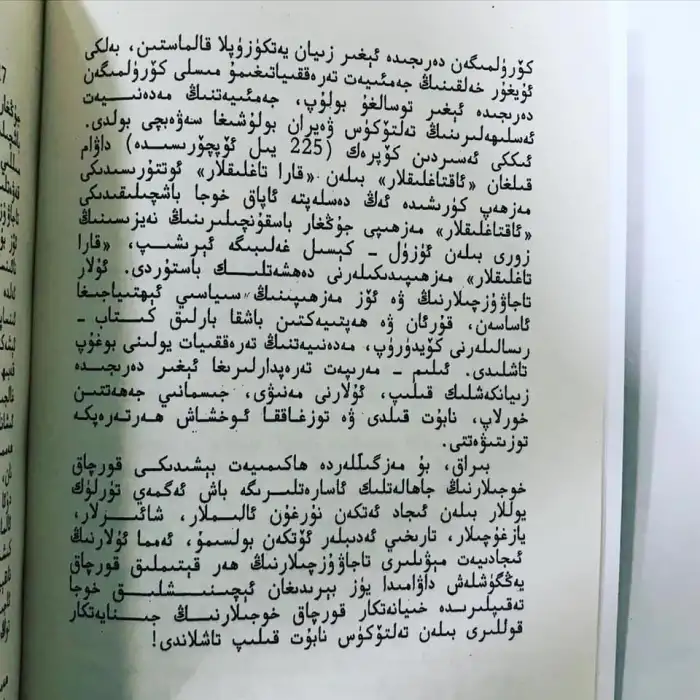 كۆرۈلمىگەن دەرىجىدە ئېغىر زىيان يەتكۈزۈپلا قالماستىن، بەلكى
ئۇيغۇر خەلقىنىڭ جەمئىيەت تەرەققىياتىغىمۇ مىسلى كۆرۈلمىگەن
دەرىجىدە ئېغىر توسالغۇ بولۇپ، جەمئىيەتنىڭ مەدەنىيەت
ئەسلىھەلىرىنىڭ تەلتۆكۈس ۋەيران بولۇشىغا سەۋەبچى بولدى.
ئىككى ئەسىردىن كۆپرەك (225 يىل ئۆپچۆرىسىدە) داۋام
قىلغان «ئاقتاغلىقلار» بىلەن «قارا تاغلىقلار» ئوتتۇرىسىدىكى
مەزھەپ كۈرىشىدە ئەڭ دەسلەپتە ئاپاق خوجا باشچىلىقىدىكى
«ئاقتاغلىقلار» مەزھىپى جۇڭغار باسقۇنچىلىرىنىڭ نەيزىسىنىڭ
زورى بىلەن ئۈزۈل - كېسىل غەلىبىگە ئېرىشىپ، «قارا
تاغلىقلار» مەزھىپىدىكىلەرنى دەھشەتلىك باستۇردى. ئۇلار
تاجاۋۇزچىلارنىڭ ۋە ئۆز مەزھىپىنىڭ سىياسىي ئېھتىياجىغا
ئاساسەن، قۇرئان ۋە ھەپتىيەكتىن باشقا بارلىق كىتاب -
رىسالىلەرنى كۆيدۈرۈپ، مەدەنىيەتنىڭ تەرەققىيات يولىنى بوغۇپ
تاشلىدى. ئىلىم - مەرىپەت تەرەپدارلىرىغا ئېغىر دەرىجىدە
زىيانكەشلىك قىلىپ، ئۇلارنى مەنىۋى، جىسمانىي جەھەتتىن
خورلاپ، نابۇت قىلدى ۋە توزغاققا ئوخشاش ھەرتەرەپكە
توزىتىۋەتتى.
بىراق، بۇ مەزگىللەردە ھاكىمىيەت بېشىدىكى قورچاق
خوجىلارنىڭ جاھالەتلىك ئاسارەتلىرىگە باش ئەگمەي تۈرلۈك
يوللار بىلەن ئىجاد ئەتكەن نۇرغۇن ئالىملار، شائىرلار،
يازغۇچىلار، تارىخىي ئەدىبلەر ئۆتكەن بولسىمۇ، ئەمما ئۇلارنىڭ
ئىجادىيەت مېۋىلىرى تاجاۋۇزچىلارنىڭ ھەر قېتىملىق قورچاق
يەڭگۈشلەش داۋامىدا يۈز بېرىدىغان ئىچىنىشلىق خوجا
تەقىپلىرىدە خىيانەتكار قورچاق خوجىلارنىڭ جىنايەتكار
قوللىرى بىلەن تەلتۆكۈس نابۇت قىلىپ تاشلاندى!